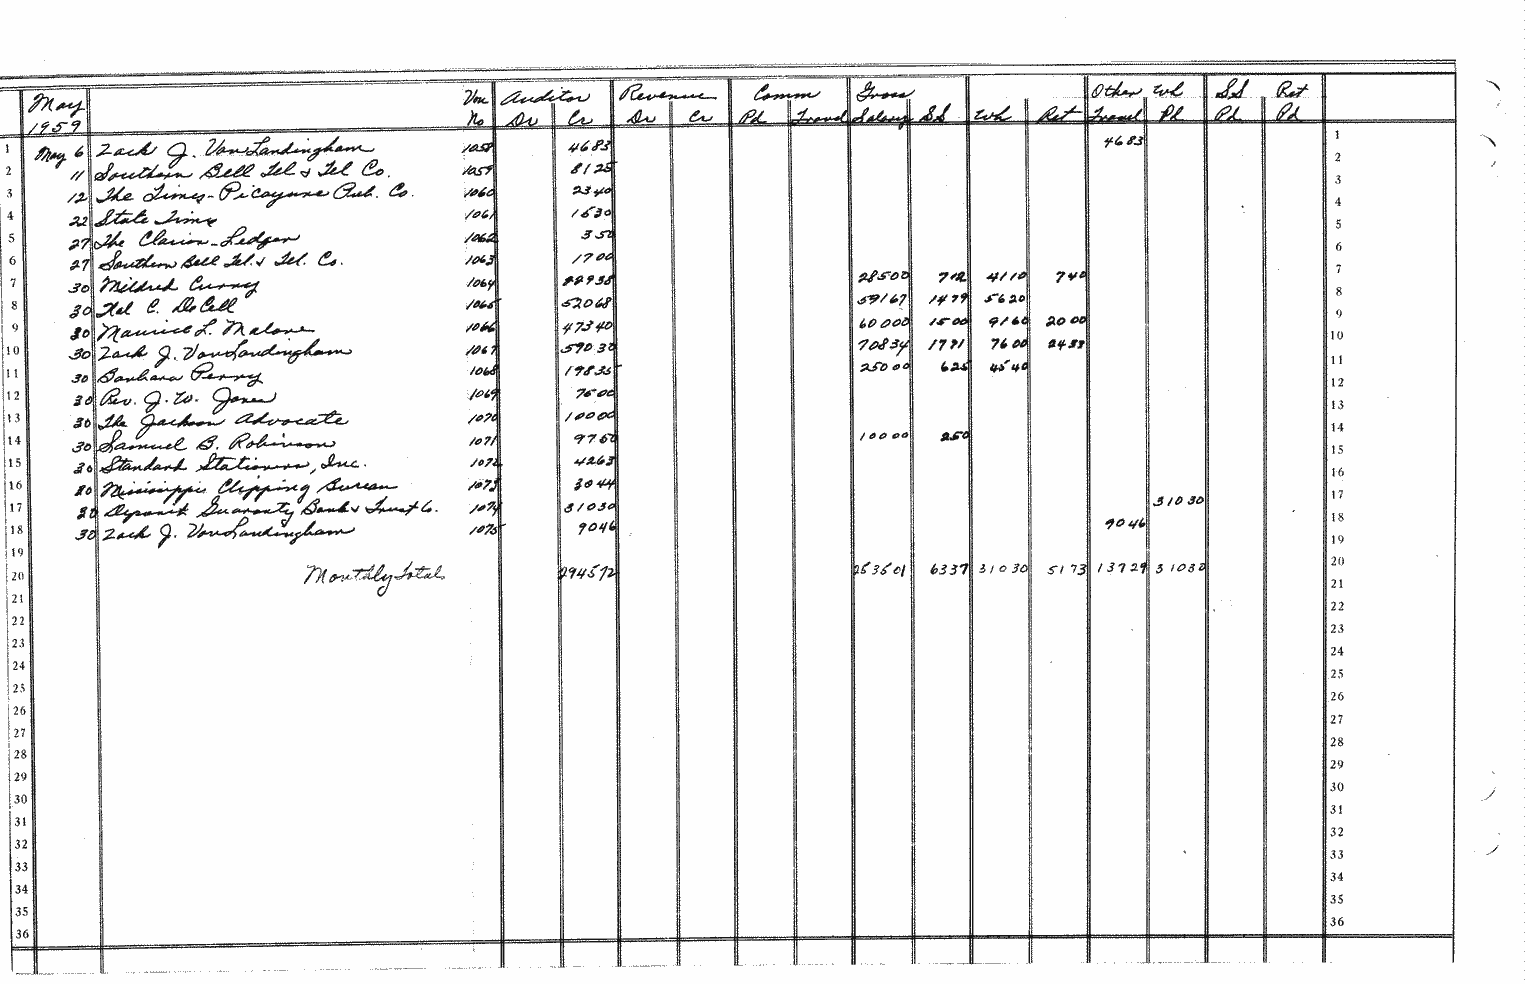 May 1959 Vou No Auditor Dr Cr Revenue Dr Cr Comm Pd Travel Gross Salary SS Wh Ret Other Travel Wh Pd SS Pd Ret Pd
1 May 6 Zack J. VanLandingham 1058 4683 4683 1
2 11 Southern Bell Tel & Tel Co. 1059 8125 2
3 12 The Times-Picayune Pub. Co. 1060 2340 3
4 22 State Times 1061 1530 4
5 27 The Clarion-Ledger 1062 350 5
6 27 Southern Bell Tel. & Tel. Co. 1063 1700 6
7 30 Mildred Curry 1064 22938 28500 712 4110 740 7
8 30 Hal C. DeCell 1065 52068 59167 1479 5620 8
9 30 Maurice L. Malone 1066 47340 60000 1500 9160 2000 9
10 30 Zack J. VanLandingham 1067 59030 70834 1771 7600 2433 10
11 30 Barbara Perry 1068 19835 25000 625 4540 11
12 30 Rev. J. W. Jones 1069 7500 12
13 30 The Jackson Advocate 1070 10000 13
14 30 Samuel B. Robinson 1071 9750 10000 250 14
15 30 Standard Stationers, Inc. 1072 4263 15
16 30 Mississippi Clipping Bureau 1073 3044 16
17 30 Deposit Guaranty Bank & Trust Co. 1074 31030 31030 17
18 30 Zack J. VanLandingham 1075 9046 9046 18
19 19
20 Monthly Totals 294572 253501 6337 31030 5173 13729 31030 20
21 21
22 22
23 23
24 24
25 25
26 26
27 27
28 28
29 29
30 30
31 31
32 32
33 33
34 34
35 35
36 36